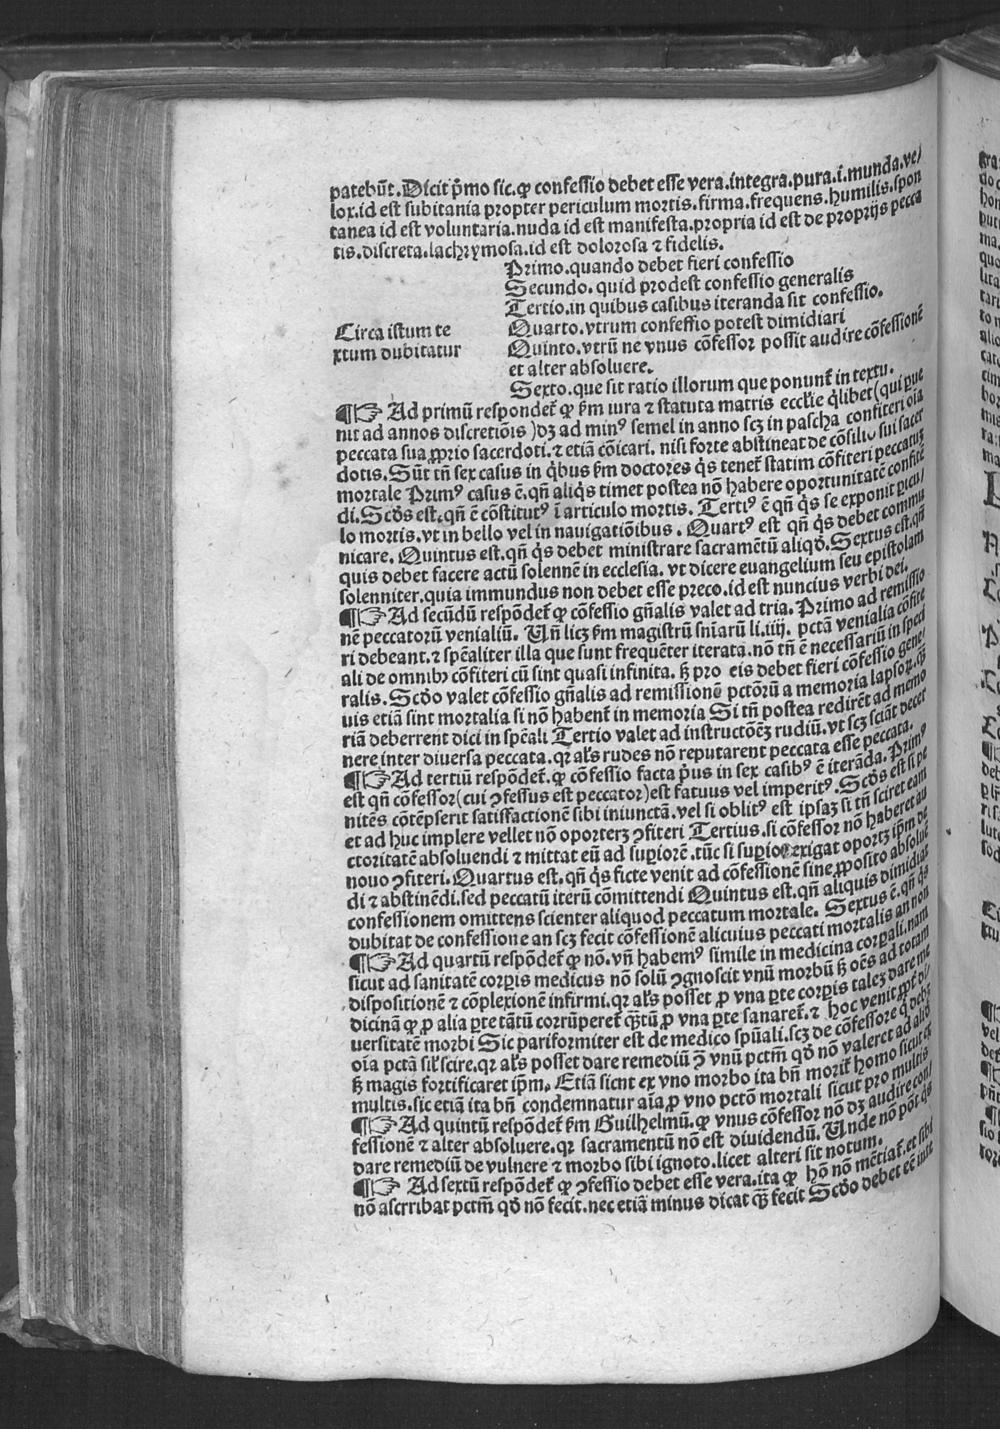 patebūt. Dicit p̄mo sic. ꝙ confessio debet esse vera. integra. pura. i. munda. ve/
lox. id est subitania propter periculum mortis. firma. frequens. humilis. spon
tanea id est voluntaria. nuda id est manifesta. propria id est de proprijs pecca
tis. discreta. lachrymosa. id est dolorosa ⁊ fidelis.
Primo. quando debet fieri confessio
Secundo. quid prodest confessio generalis
Tertio. in quibus casibus iteranda sit confessio.
Circa istum te
xtum dubitatur
Quarto. vtrum confessio potest dimidiari
Quinto. vtrū ne vnus cōfessor possit audire cōfessionē
et alter absoluere.
Sexto. que sit ratio illorum que ponunt̄ in textu.
¶☞ Ad primū respondet̄ ꝙ ẜm iura ⁊ statuta matris eccl̄ie q̄libet (qui pue
nit ad annos discretiōis) dꝫ ad minꝰ semel in anno scꝫ in pascha confiteri oīa
peccata sua ꝓprio sacerdoti. ⁊ etiā cōicari. nisi forte abstineat de cōsilio sui sacer
dotis. Sūt tn̄ sex casus in q̄bus ẜm doctores q̄s tenet̄ statim cōfiteri peccatuꝫ
mortale Primꝰ casus ē. qn̄ aliq̄s timet postea nō habere oportunitatē confitē
di. Scd̄s est. qn̄ ē cōstitutꝰ ī articulo mortis. Tertiꝰ ē qn̄ q̄s se exponit ꝑicu/
lo mortis. vt in bello vel in nauigatiōibus. Quartꝰ est qn̄ q̄s debet commu
nicare. Quintus est. qn̄ q̄s debet ministrare sacramētū aliqd̄. Sextus est. qn̄
quis debet facere actū solennē in ecclesia. vt dicere euangelium seu epistolam
solenniter. quia immundus non debet esse preco. id est nuncius verbi dei.
¶☞ Ad secūdū respōdet̄ ꝙ cōfessio gn̄alis valet ad tria. Primo ad remissio
nē peccatorū venialiū. Vn̄ licꝫ ẜm magistrū sn̄iarū li. iiij. pctā venialia cōfite
ri debeant. ⁊ spēaliter illa que sunt frequēter iterata. nō tn̄ ē necessariū in speci
ali de omnibꝫ cōfiteri cū sint quasi infinita. ꝫ pro eis debet fieri cōfessio gene/
ralis. Scd̄o valet cōfessio gn̄alis ad remissionē pctōrū a memoria lapsoꝝ. q̄ꝫ
uis etiā sint mortalia si nō habent̄ in memoria Si tn̄ postea redirēt ad memo
riā deberrent dici in spēali Tertio valet ad instructōēꝫ rudiū. vt scꝫ sciāt decer
nere inter diuersa peccata. qꝛ al̄s rudes nō reputarent peccata esse peccata.
¶☞ Ad tertiū respōdet̄. ꝙ cōfessio facta p̄us in sex casibꝰ ē iterāda. Primꝰ
est qn̄ cōfessor (cui ꝯfessus est peccator) est fatuus vel imperitꝰ. Scd̄s est si pe
nitēs cōtēpserit satisfactionē sibi iniunctā. vel si oblitꝰ est ipsaꝫ si tn̄ sciret eam
et ad huc implere vellet nō oporterꝫ ꝯfiteri Tertius. si cōfessor nō haberet au
ctoritatē absoluendi ⁊ mittat eū ad supiorē. tūc si supior exigat oportꝫ ip̄m de
nouo ꝯfiteri. Quartus est. qn̄ q̄s ficte venit ad cōfessionē sine ꝓposito absoluē
di ⁊ abstinēdi. sed peccatū iterū cōmittendi Quintus est. qn̄ aliquis dimidiat
confessionem omittens scienter aliquod peccatum mortale. Sextus ē. qn̄ q̄s
dubitat de confessione an scꝫ fecit cōfessionē alicuius peccati mortalis an non
¶☞ Ad quartū respōdet̄ ꝙ nō. vn̄ habemꝰ simile in medicina corꝑali. nam
sicut ad sanitatē corꝑis medicus nō solū ꝯgnoscit vnū morbū ꝫ oēs ad totam
dispositionē ⁊ cōplexionē infirmi. qꝛ al̄s posset ꝑ vna ꝑte corꝑis taleꝫ dare me
dicinā ꝙ ꝑ alia ꝑte tātū corrūperet̄ q̄ꝫtū ꝑ vna ꝑte sanaret̄. ⁊ hoc venit ꝓpt̄ di/
uersitatē morbi Sic pariformiter est de medico spūali. scꝫ de cōfessore q̄ debꝫ
oīa pctā sil̄ scire. qꝛ al̄s posset dare remediū ꝯ̄ vnū pctm̄ qd̄ nō valeret ad aliō
ꝫ magis fortificaret ip̄m. Etiā sicut ex vno morbo ita bn̄ morit̄ homo sicut ex
multis. sic etiā ita bn̄ condemnatur aīa ꝑ vno pctō mortali sicut pro multis
¶☞ Ad quintū respōdet̄ ẜm Guilhelmū. ꝙ vnus cōfessor nō dꝫ audire con/
fessionē ⁊ alter absoluere. qꝛ sacramentū nō est diuidendū. Unde nō pōt q̄s
dare remediū de vulnere ⁊ morbo sibi ignoto. licet alteri sit notum.
¶☞ Ad sextū respōdet̄ ꝙ ꝯfessio debet esse vera. ita ꝙ hō nō mētiat̄. et sibi
nō ascrribat pctm̄ qd̄ nō fecit. nec etiā minus dicat q̄ꝫ fecit Scd̄o debet eē inte